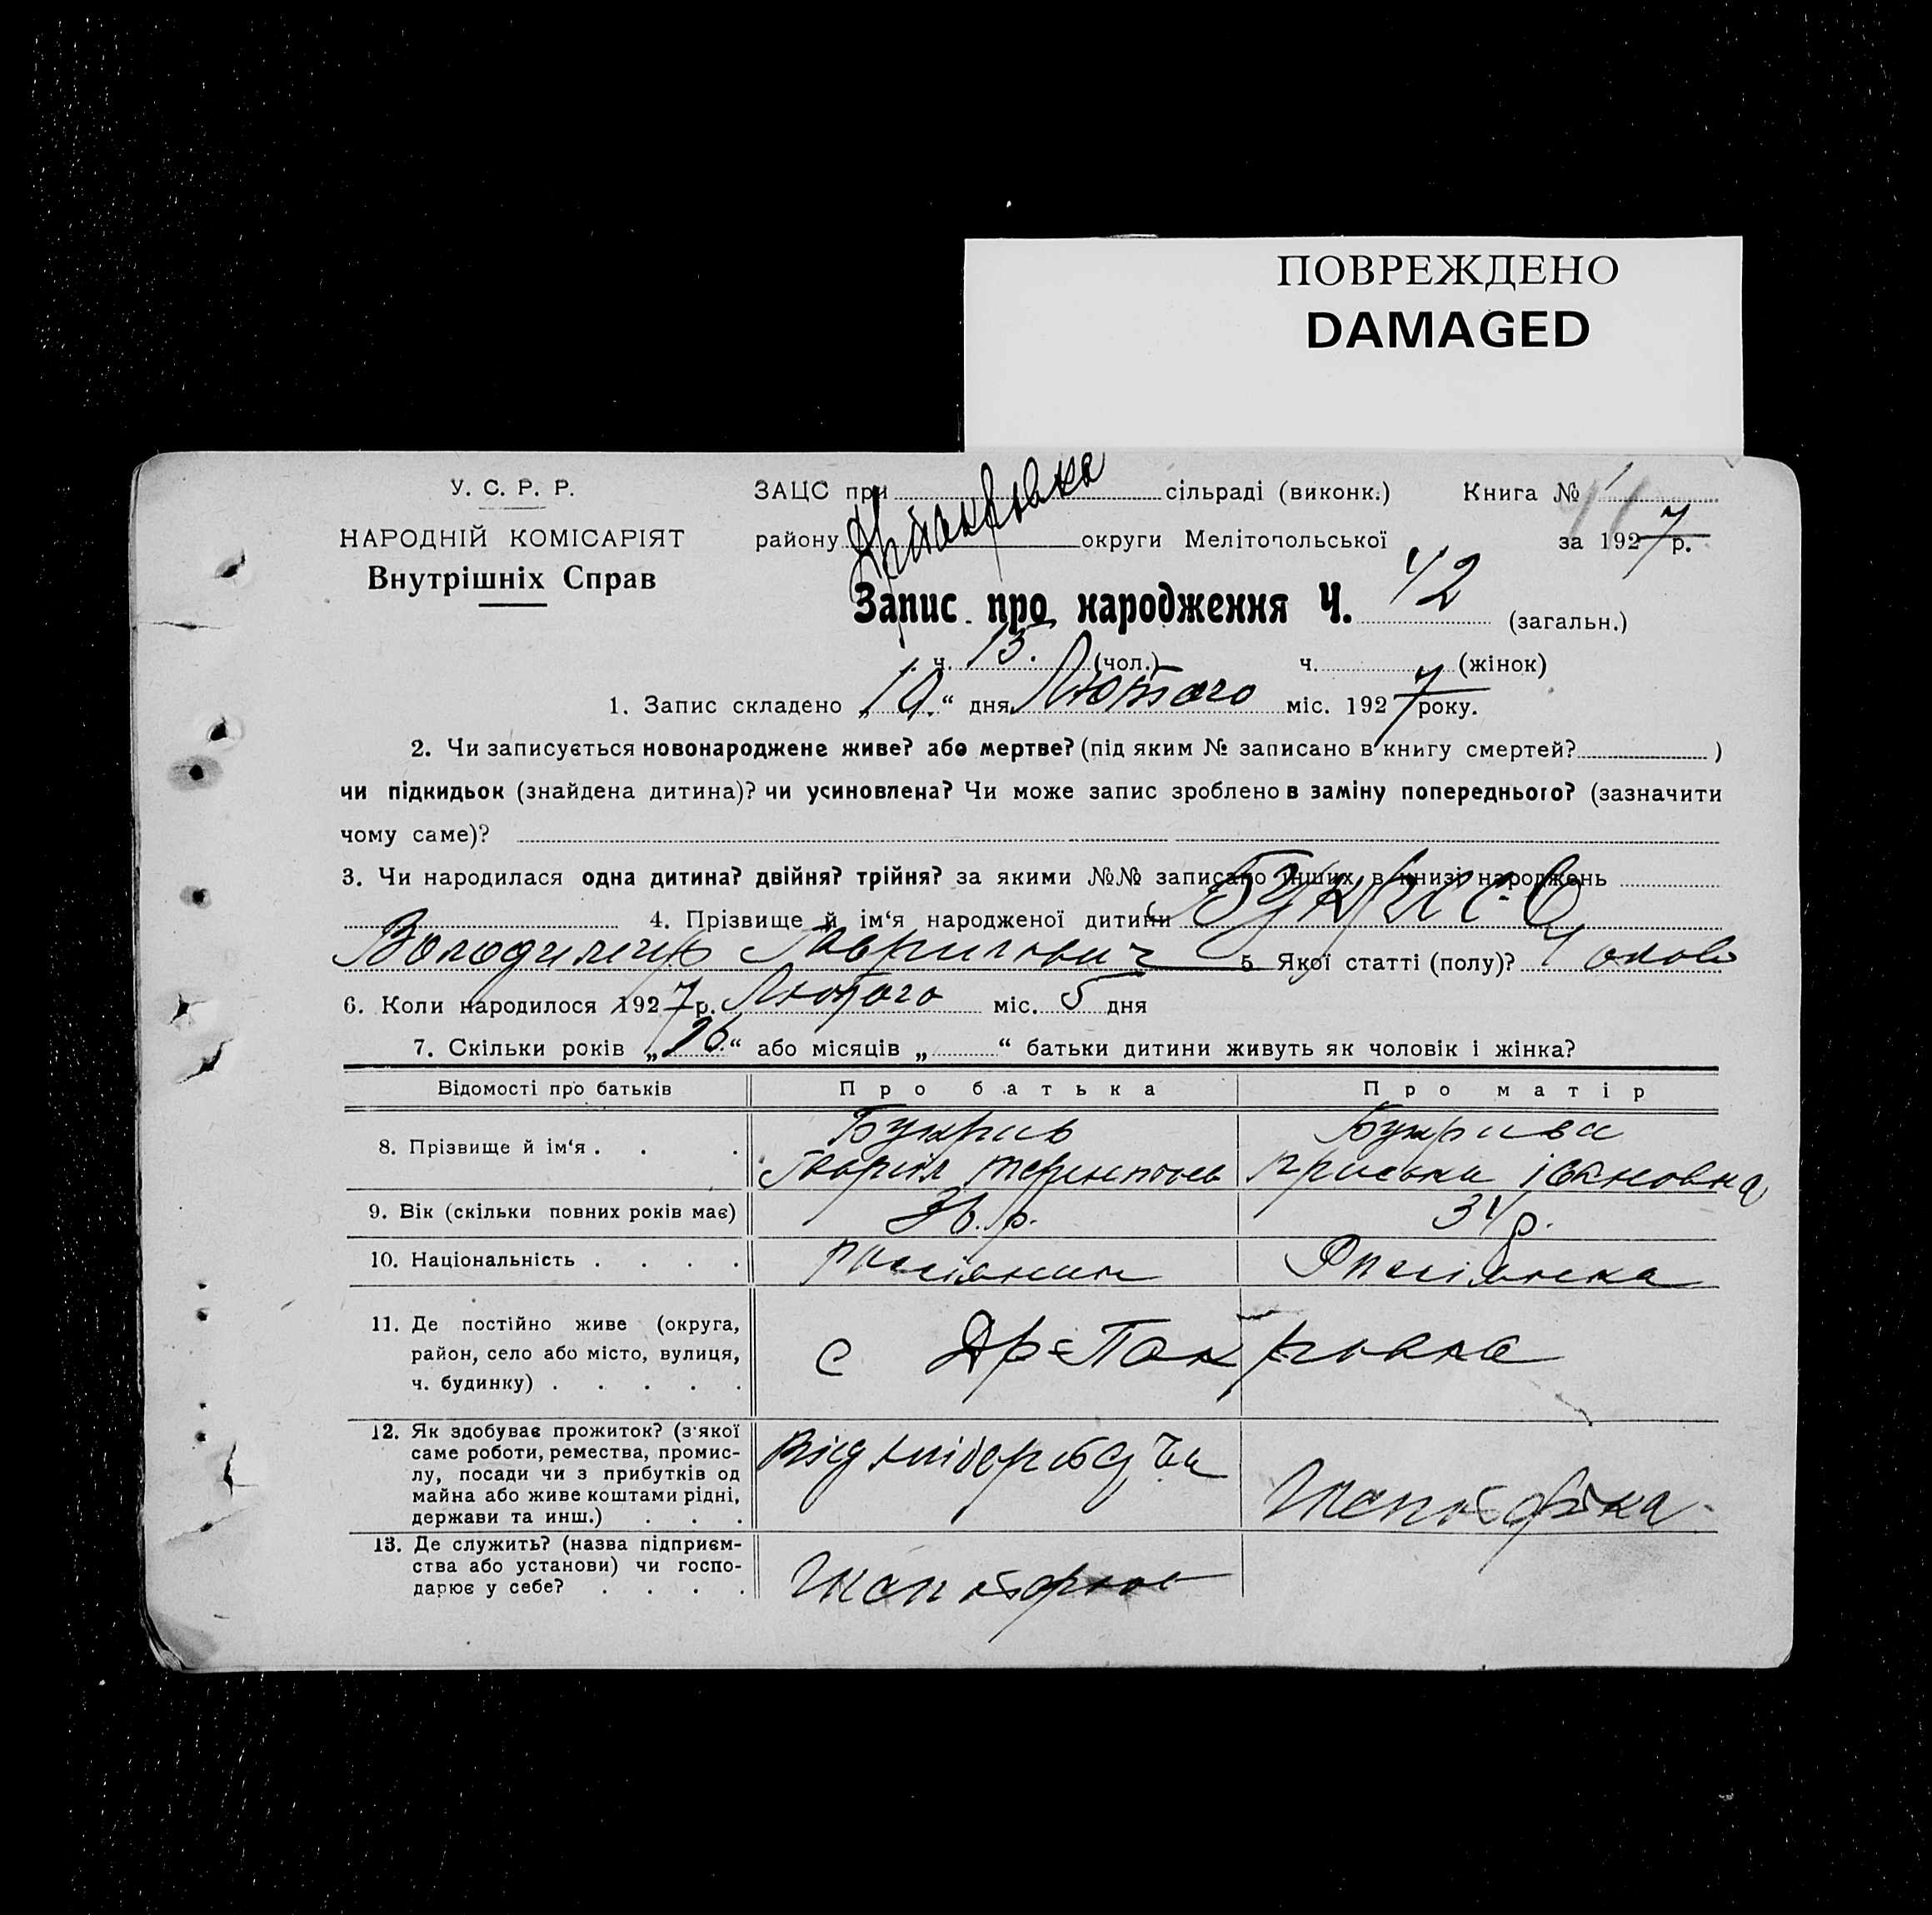 ПОВРЕЖДЕНО
DAMAGED
У. С. Р. Р.
НАРОДНІЙ КОМІСАРІЯТ
Внутрішніх Справ
ЗАЦС при сільраді (виконк.) Книга №
району округи Мелітопольської за 1927 р.
Запис про народження Ч. 42 (загальн.)
ч. 15. (чол.) ч. (жінок)
1. Запис складено „10.“ дня Лютого міс. 1927 року.
2. Чи записується новонароджене живе? або мертве? (під яким № записано в книгу смертей? )
чи підкидьок (знайдена дитина)? чи усиновлена? Чи може запис зроблено в заміну попереднього? (зазначити
чому саме)?
3. Чи народилася одна дитина? двійня? трійня? за якими №№ записано інших в книзі народжень
4. Прізвище й ім'я народженої дитини
Володимир Гаврилович 5. Якої статті (полу)? Чолов
6. Коли народилося 1927 р. Лютого міс. 5 дня
7. Скільки років „16.“ або місяців „ “ батьки дитини живуть як чоловік і жінка?
Відомості про батьків Про батька Про матір
8. Прізвище й ім'я . . . Букрив Букрива
Гавриїл івановна
9. Вік (скільки повних років має) 36. р. 34 р.
10. Національність . . . . росіянин Росіянка
11. Де постійно живе (округа,
район, село або місто, вулиця,
ч. будинку) . . . . . с Др-Покровка
12. Як здобуває прожиток? (з'якої
саме роботи, ремества, промис-
лу, посади чи з прибутків од
майна або живе коштами рідні,
держави та инш.) . . .
13. Де служить? (назва підприєм-
ства або установи) чи госпо-
дарює у себе? . . . .